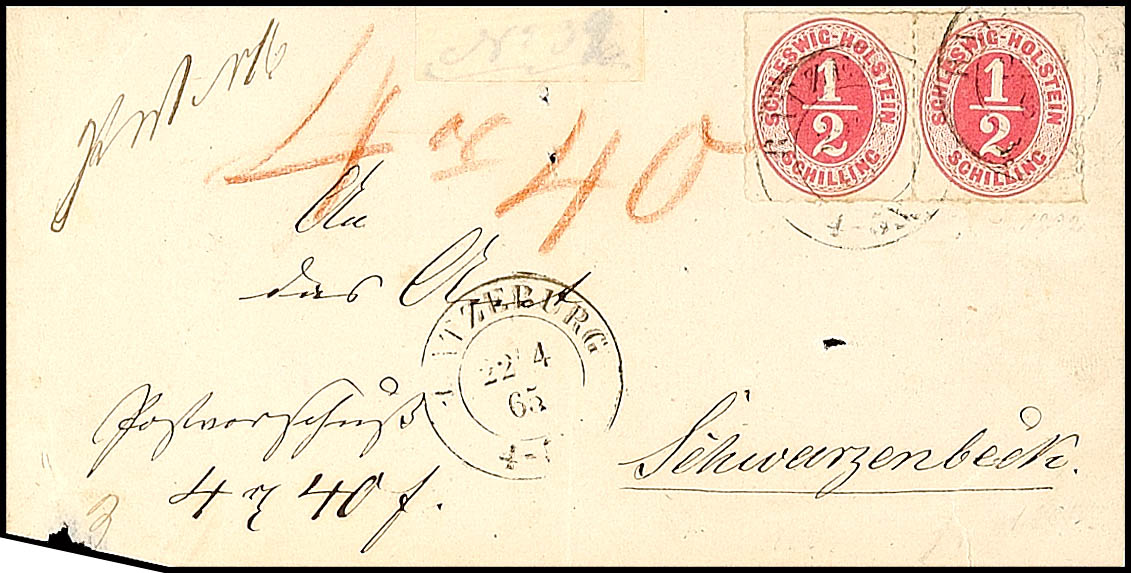 SCHLESWIG-HOLSTEIN
1/2
SCHILLING
SCHLESWIG-HOLSTEIN
1/2
SCHILLING
4 40
An
das Amt
ATZEBURG
22 4
65
4-
Postvorschuß
4 40 f.
Schwarzenbeck.